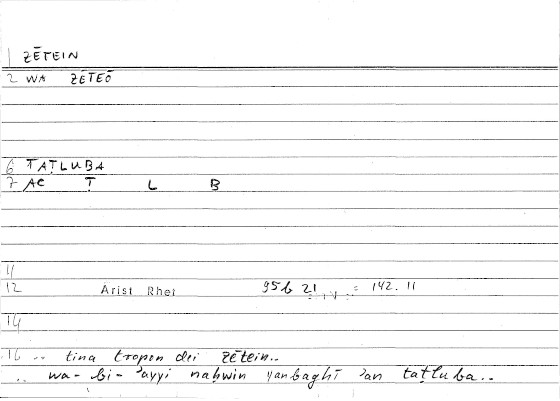 1 ZĒTEIN
2 WA ZĒTEŌ
6 TAṬLUBA
7 AC Ṭ L B
11
12 Arist Rhet 95b 21 = 142.11
14
16 .. tina tropon dei zētein..
.. wa-bi-'ayyi naḥwin yanbaghī 'an taṭluba..